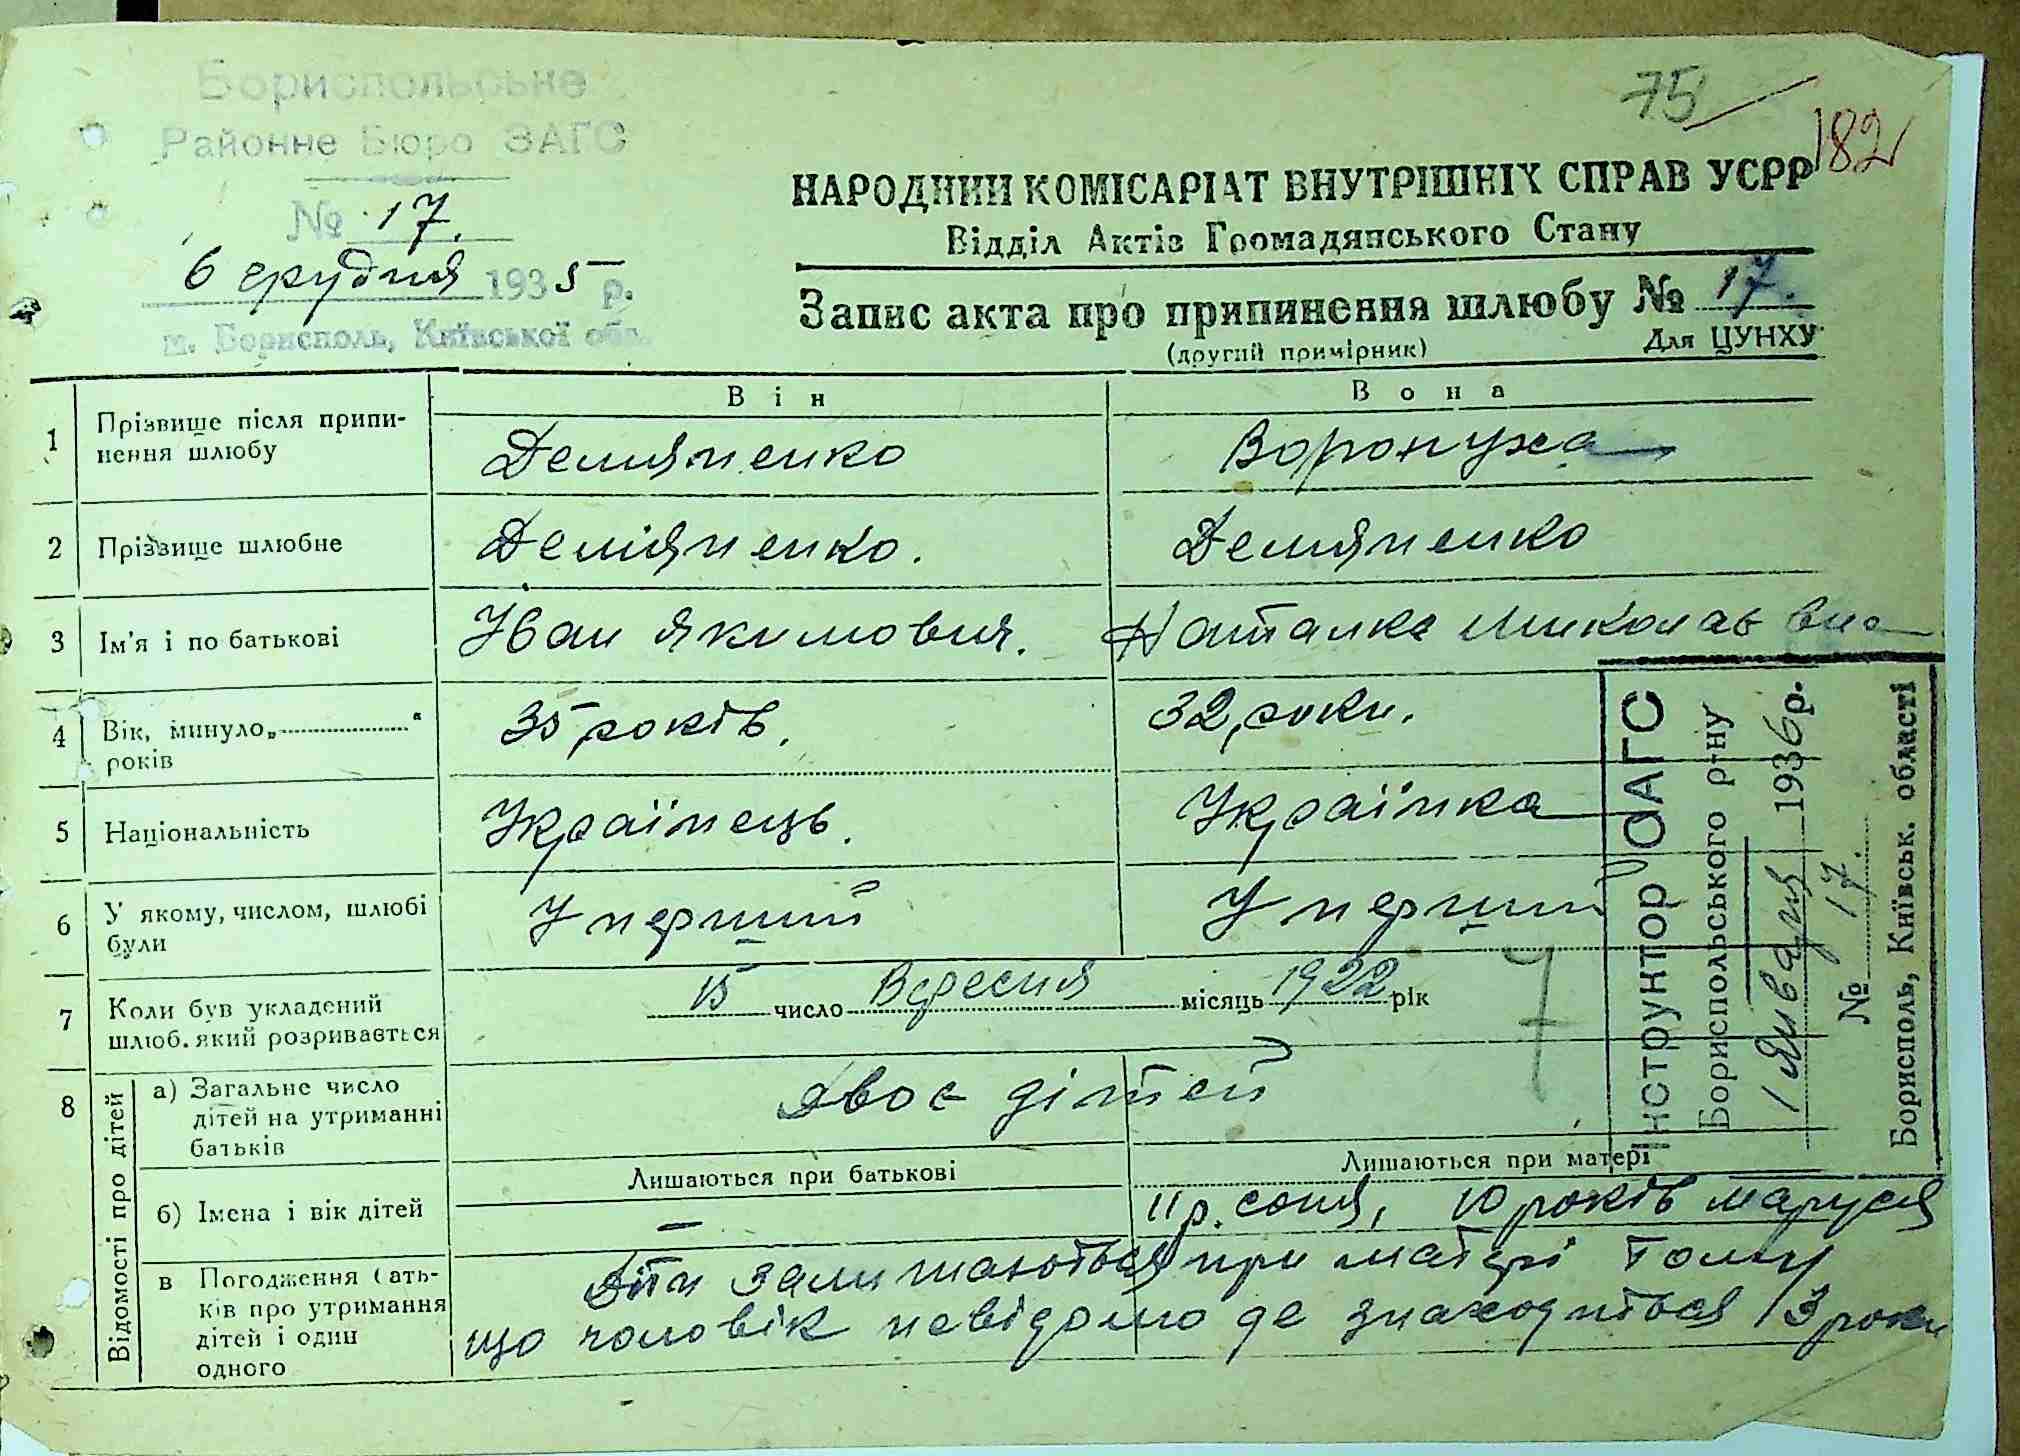 Бориспольське
Районне Бюро ЗАГС
№ 17.
6 грудня 1935 р.
м. Борисполь, Київської обл.
75
182
НАРОДНИЙ КОМІСАРІАТ ВНУТРІШНІХ СПРАВ УСРР
Відділ Актів Громадянського Стану
Запис акта про припинення шлюбу № 17.
(другий примірник)
Для ЦУНХУ
Він
Вона
1 Прізвище після припинення шлюбу
Демяненко
Воронуха
2 Прізвище шлюбне
Деміяненко.
Демяненко
3 Ім'я і по батькові
Іван Якимовия.
Наталка Миколаєвна
4 Вік, минуло „ “ років
35 років.
32 роки.
5 Національність
Українець.
Українка
6 У якому, числом, шлюбі були
У перший
У перший
7 Коли був укладений шлюб, який розривається
15 число Вересня місяць 1922 рік
7
8 Відомості про дітей
а) Загальне число дітей на утриманні батьків
Двоє дітей
Лишаються при батькові
Лишаються при матері
б) Імена і вік дітей
–
11 р. Соня, 10 років Маруся
в Погодження батьків про утримання дітей і один одного
Діти залишаються при матері тому
що чоловік невідомо де знаходиться 3 роки
Інструктор ОАГС
Бориспольського р-ну
1 января 1936 р.
№ 17.
Борисполь, Київськ. області